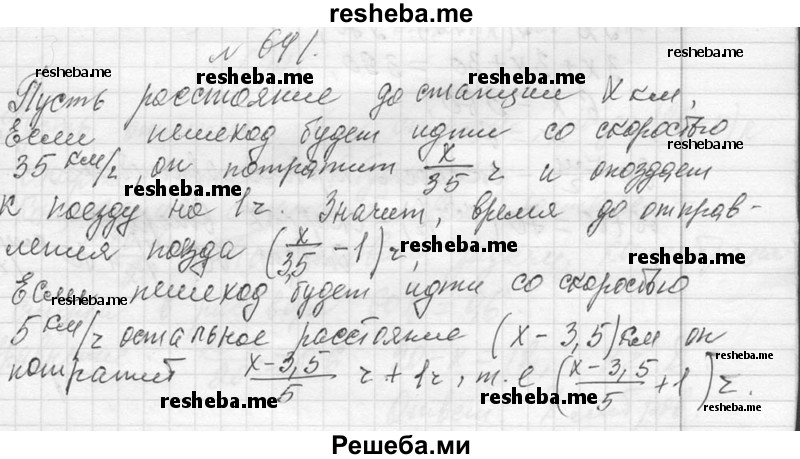 resheba.me
№ 641.
resheba.me resheba.me
Пусть расстояние до станции x км,
resheba.me
Если пешеход будет идти со скоростью
35 км/ч, он потратит x/35 ч и опоздает
resheba.me resheba.me
к поезду на 1 ч. Значит, время до отправ-
ления поезда (x/3,5 - 1) ч,
resheba.me
Если пешеход будет идти со скоростью
resheba.me
5 км/ч остальное расстояние (x - 3,5) км он
resheba.me
потратит x-3,5/5 ч + 1 ч, т.е (x-3,5/5 + 1) ч.
resheba.me resheba.me resheba.me
Решеба.ми